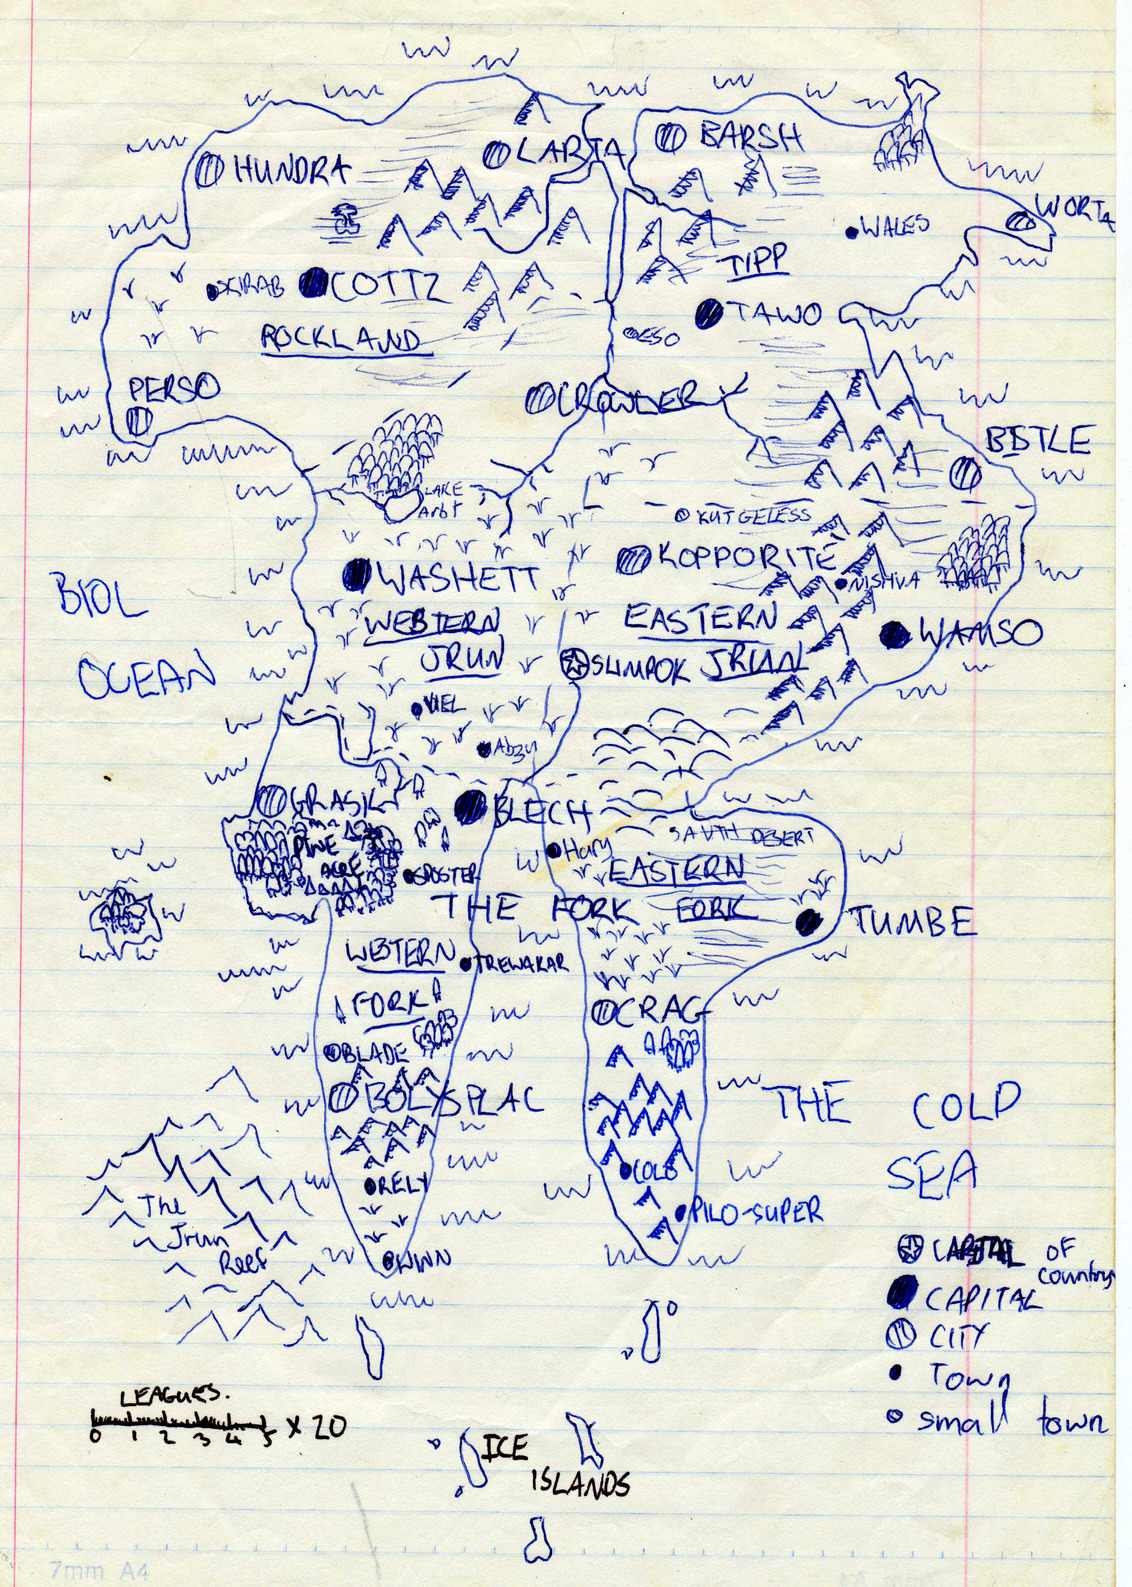 HUNDRA
LARTA
BARSH
WORTA
WALES
TIPP
SKIRAB
COTTZ
TAWO
ROCKLAND
ESO
PERSO
CROWLER
BISTLE
LAKE
Arbt
KUTGELESS
KOPPORITE
WASHETT
NISHVA
BIOL
OCEAN
WESTERN
JRUN
EASTERN
JRUN
WAMSO
SLIMPOK
VIEL
Abzy
GRASK
BLECH
PINE
ACRE
SPOSTER
Hary
SAUTH DESERT
EASTERN
FORK
THE FORK
TUMBE
WESTERN
FORK
TREWAKAR
CRAG
BLADE
BOLYSPLAC
THE COLD
SEA
COLB
RELY
PILO-SUPER
The
Jrun
Reef
WWN
CAPITAL OF
country
CAPITAL
CITY
Town
small town
LEAGUES.
0 1 2 3 4 5 x 20
ICE
ISLANDS
7mm A4